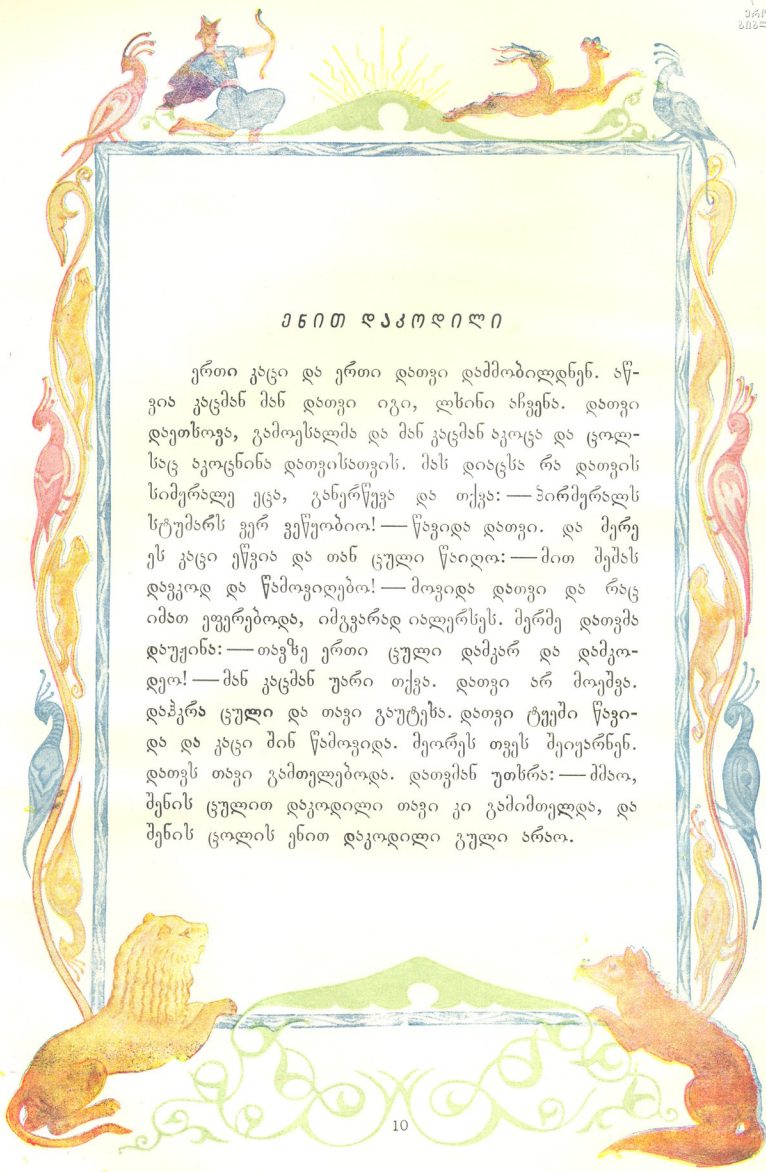 ენით დაკოდილი
ერთი კაცი და ერთი დათვი დაძმობილდნენ. აწ-
ვია კაცმან მან დათვი იგი, ლხინი აჩვენა. დათვი
დაეთხოვა, გამოესალმა და მან კაცმან აკოცა და ცოლ-
საც აკოცნინა დათვისათვის. მას დიაცსა რა დათვის
სიმყრალე ეცა, განერწყვა და თქვა: — პირმყრალს
სტუმარს ვერ ვეწყობიო! — წავიდა დათვი. და მერე
ეს კაცი ეწვია და თან ცული წაიღო: — მით შეშას
დავკოდ და წამოვიღებო! — მოვიდა დათვი და რაც
იმათ ეფერებოდა, იმგვარად იალერსეს. მერმე დათვმა
დაუჟინა: — თავზე ერთი ცული დამკარ და დამკო-
დეო! — მან კაცმან უარი თქვა. დათვი არ მოეშვა.
დაჰკრა ცული და თავი გაუტეხა. დათვი ტყეში წავი-
და და კაცი შინ წამოვიდა. მეორეს თვეს შეიყარნენ.
დათვს თავი გამთელებოდა. დათვმან უთხრა: — ძმაო,
შენის ცულით დაკოდილი თავი კი გამიმთელდა, და
შენის ცოლის ენით დაკოდილი გული არაო.
10